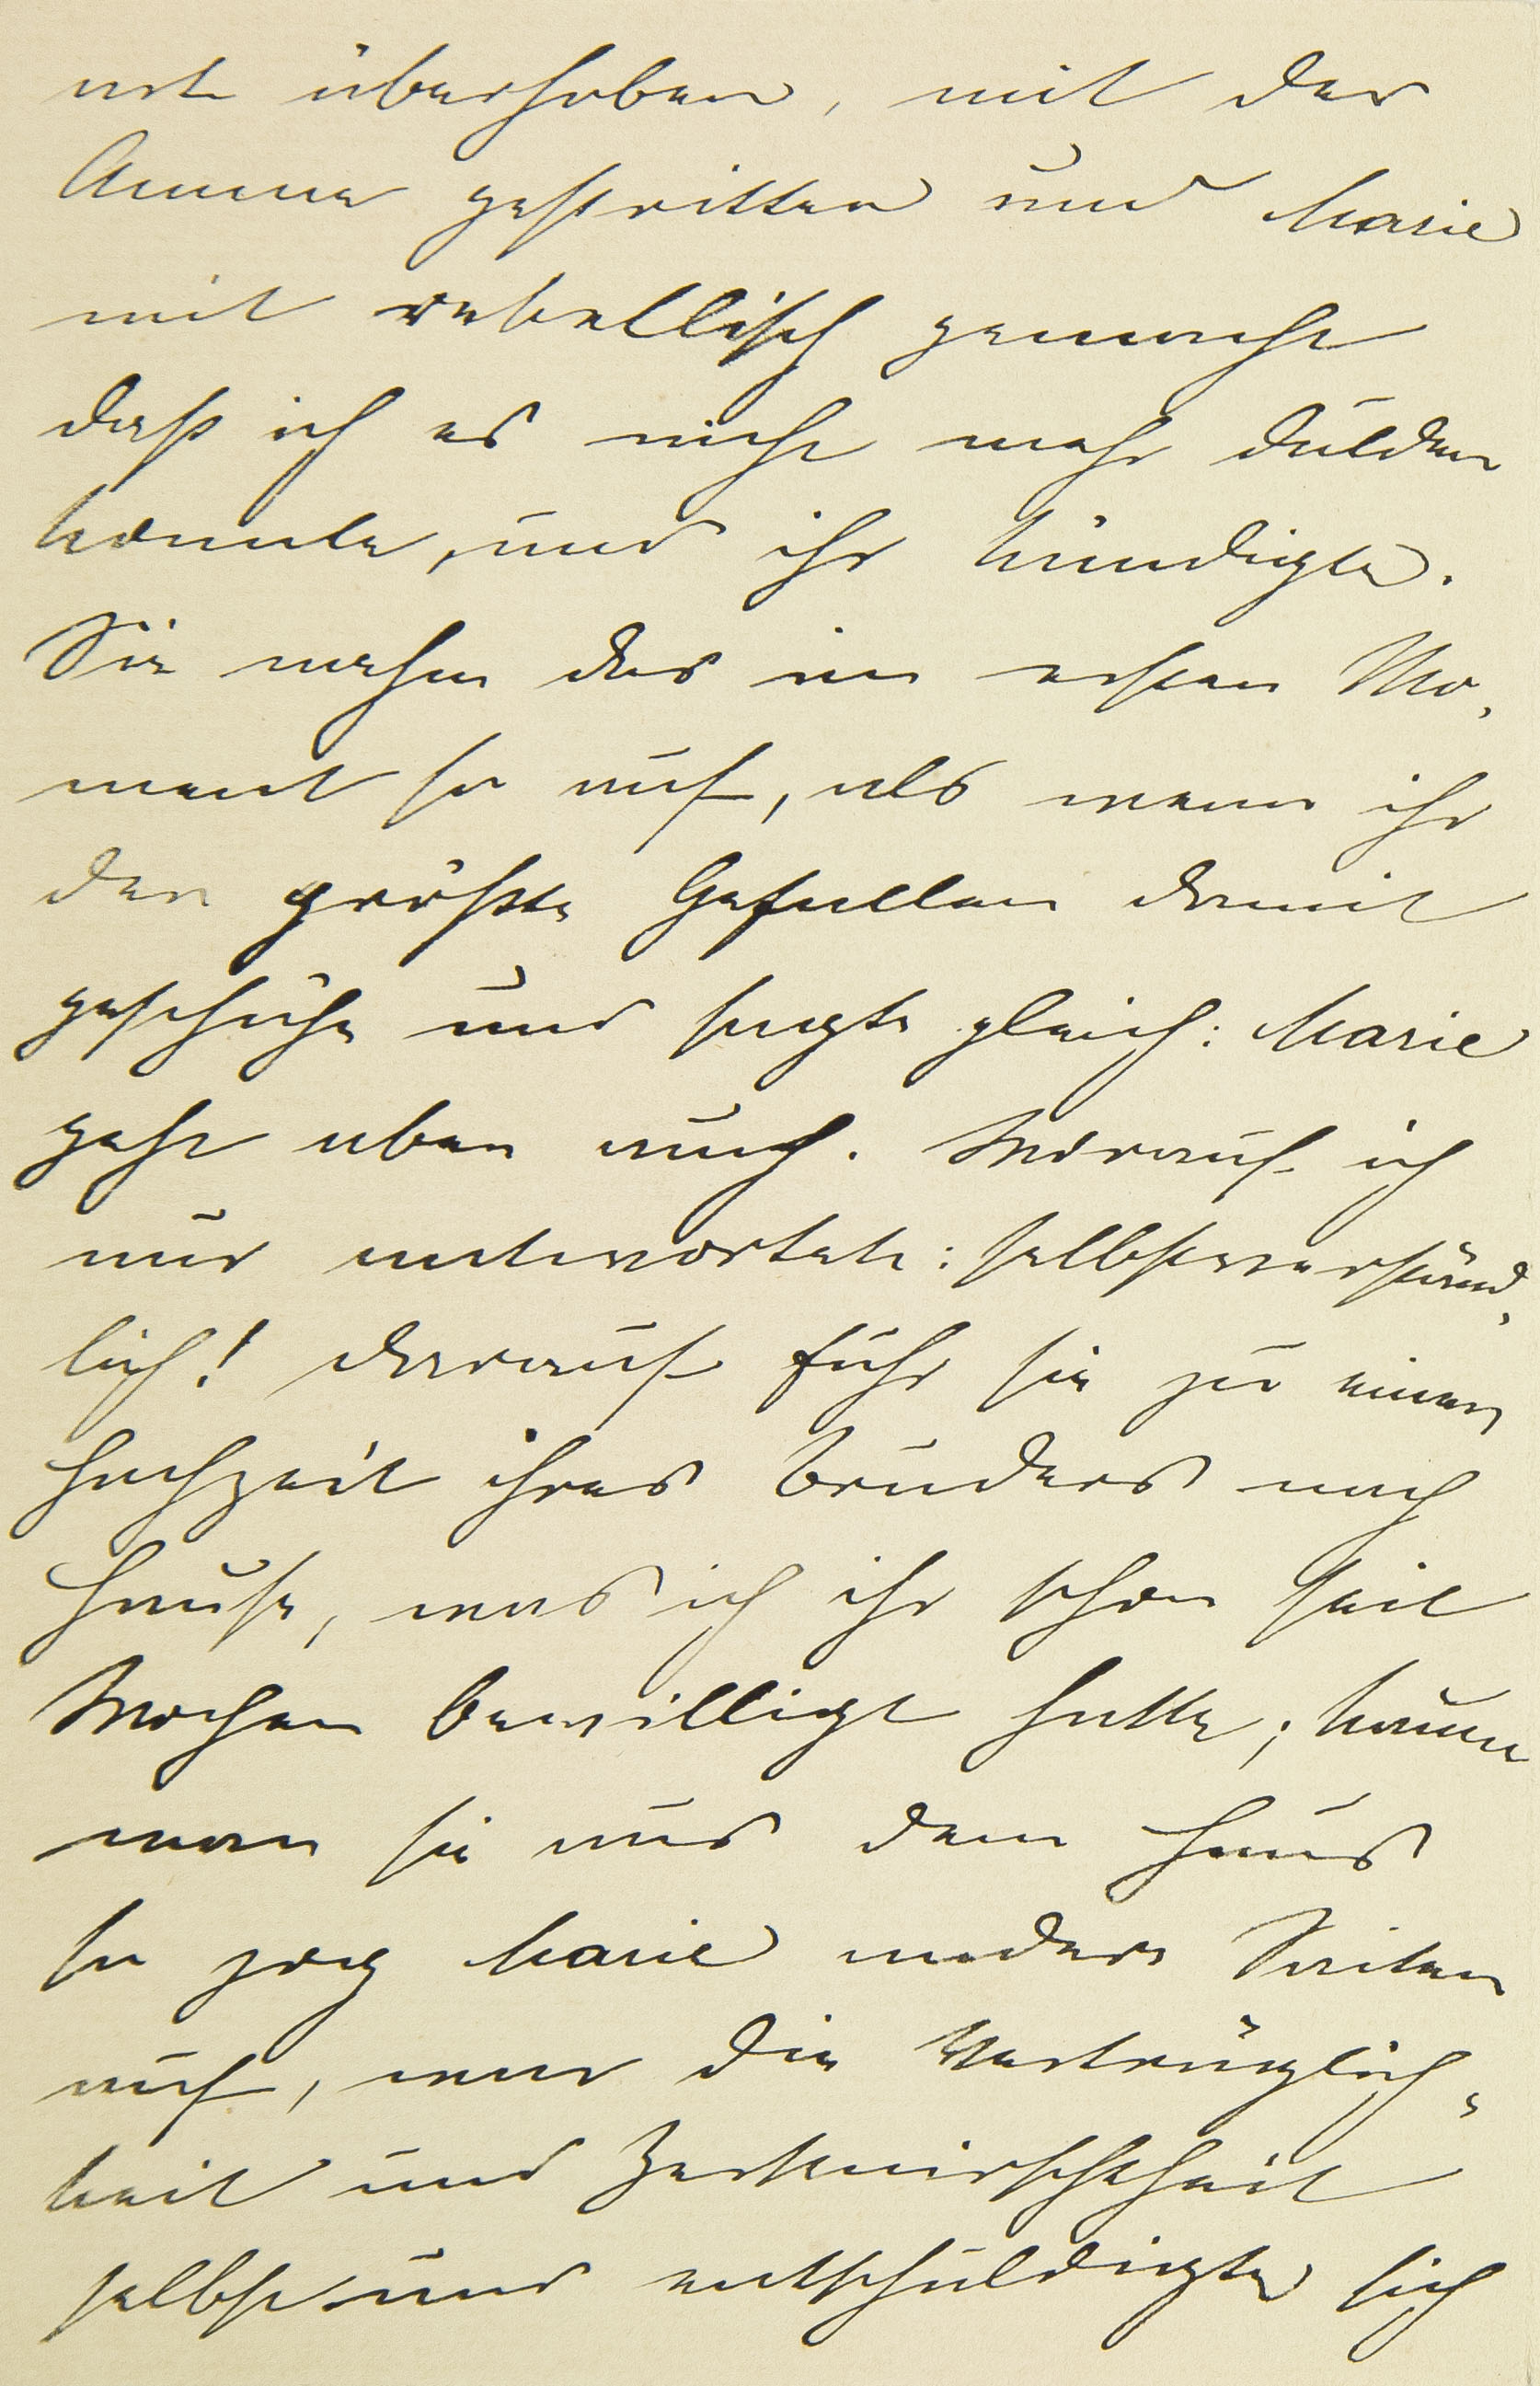 arte überhoben, mit der
Amme gestritten und Marie
mit rebellisch gemacht
daß ich es nicht mehr dulden
konnte, und ihr kündigte.
Sie nahm das im ersten Mo-
ment so auf, als wenn ihr
der größte Gefallen damit
geschähe und sagte gleich: Marie
geht aber auch. Worauf ich
nur antwortete: selbstverständ-
lich! Darauf fuhr sie zu einer
Hochzeit ihres Bruders nach
Hause, was ich ihr schon seit
Wochen bewilligt hatte; kaum
war sie aus dem Haus
so zog Marie andere Saiten
auf, war die Verträglich-
keit und Zerknirschtheit
selbst und entschuldigte sich